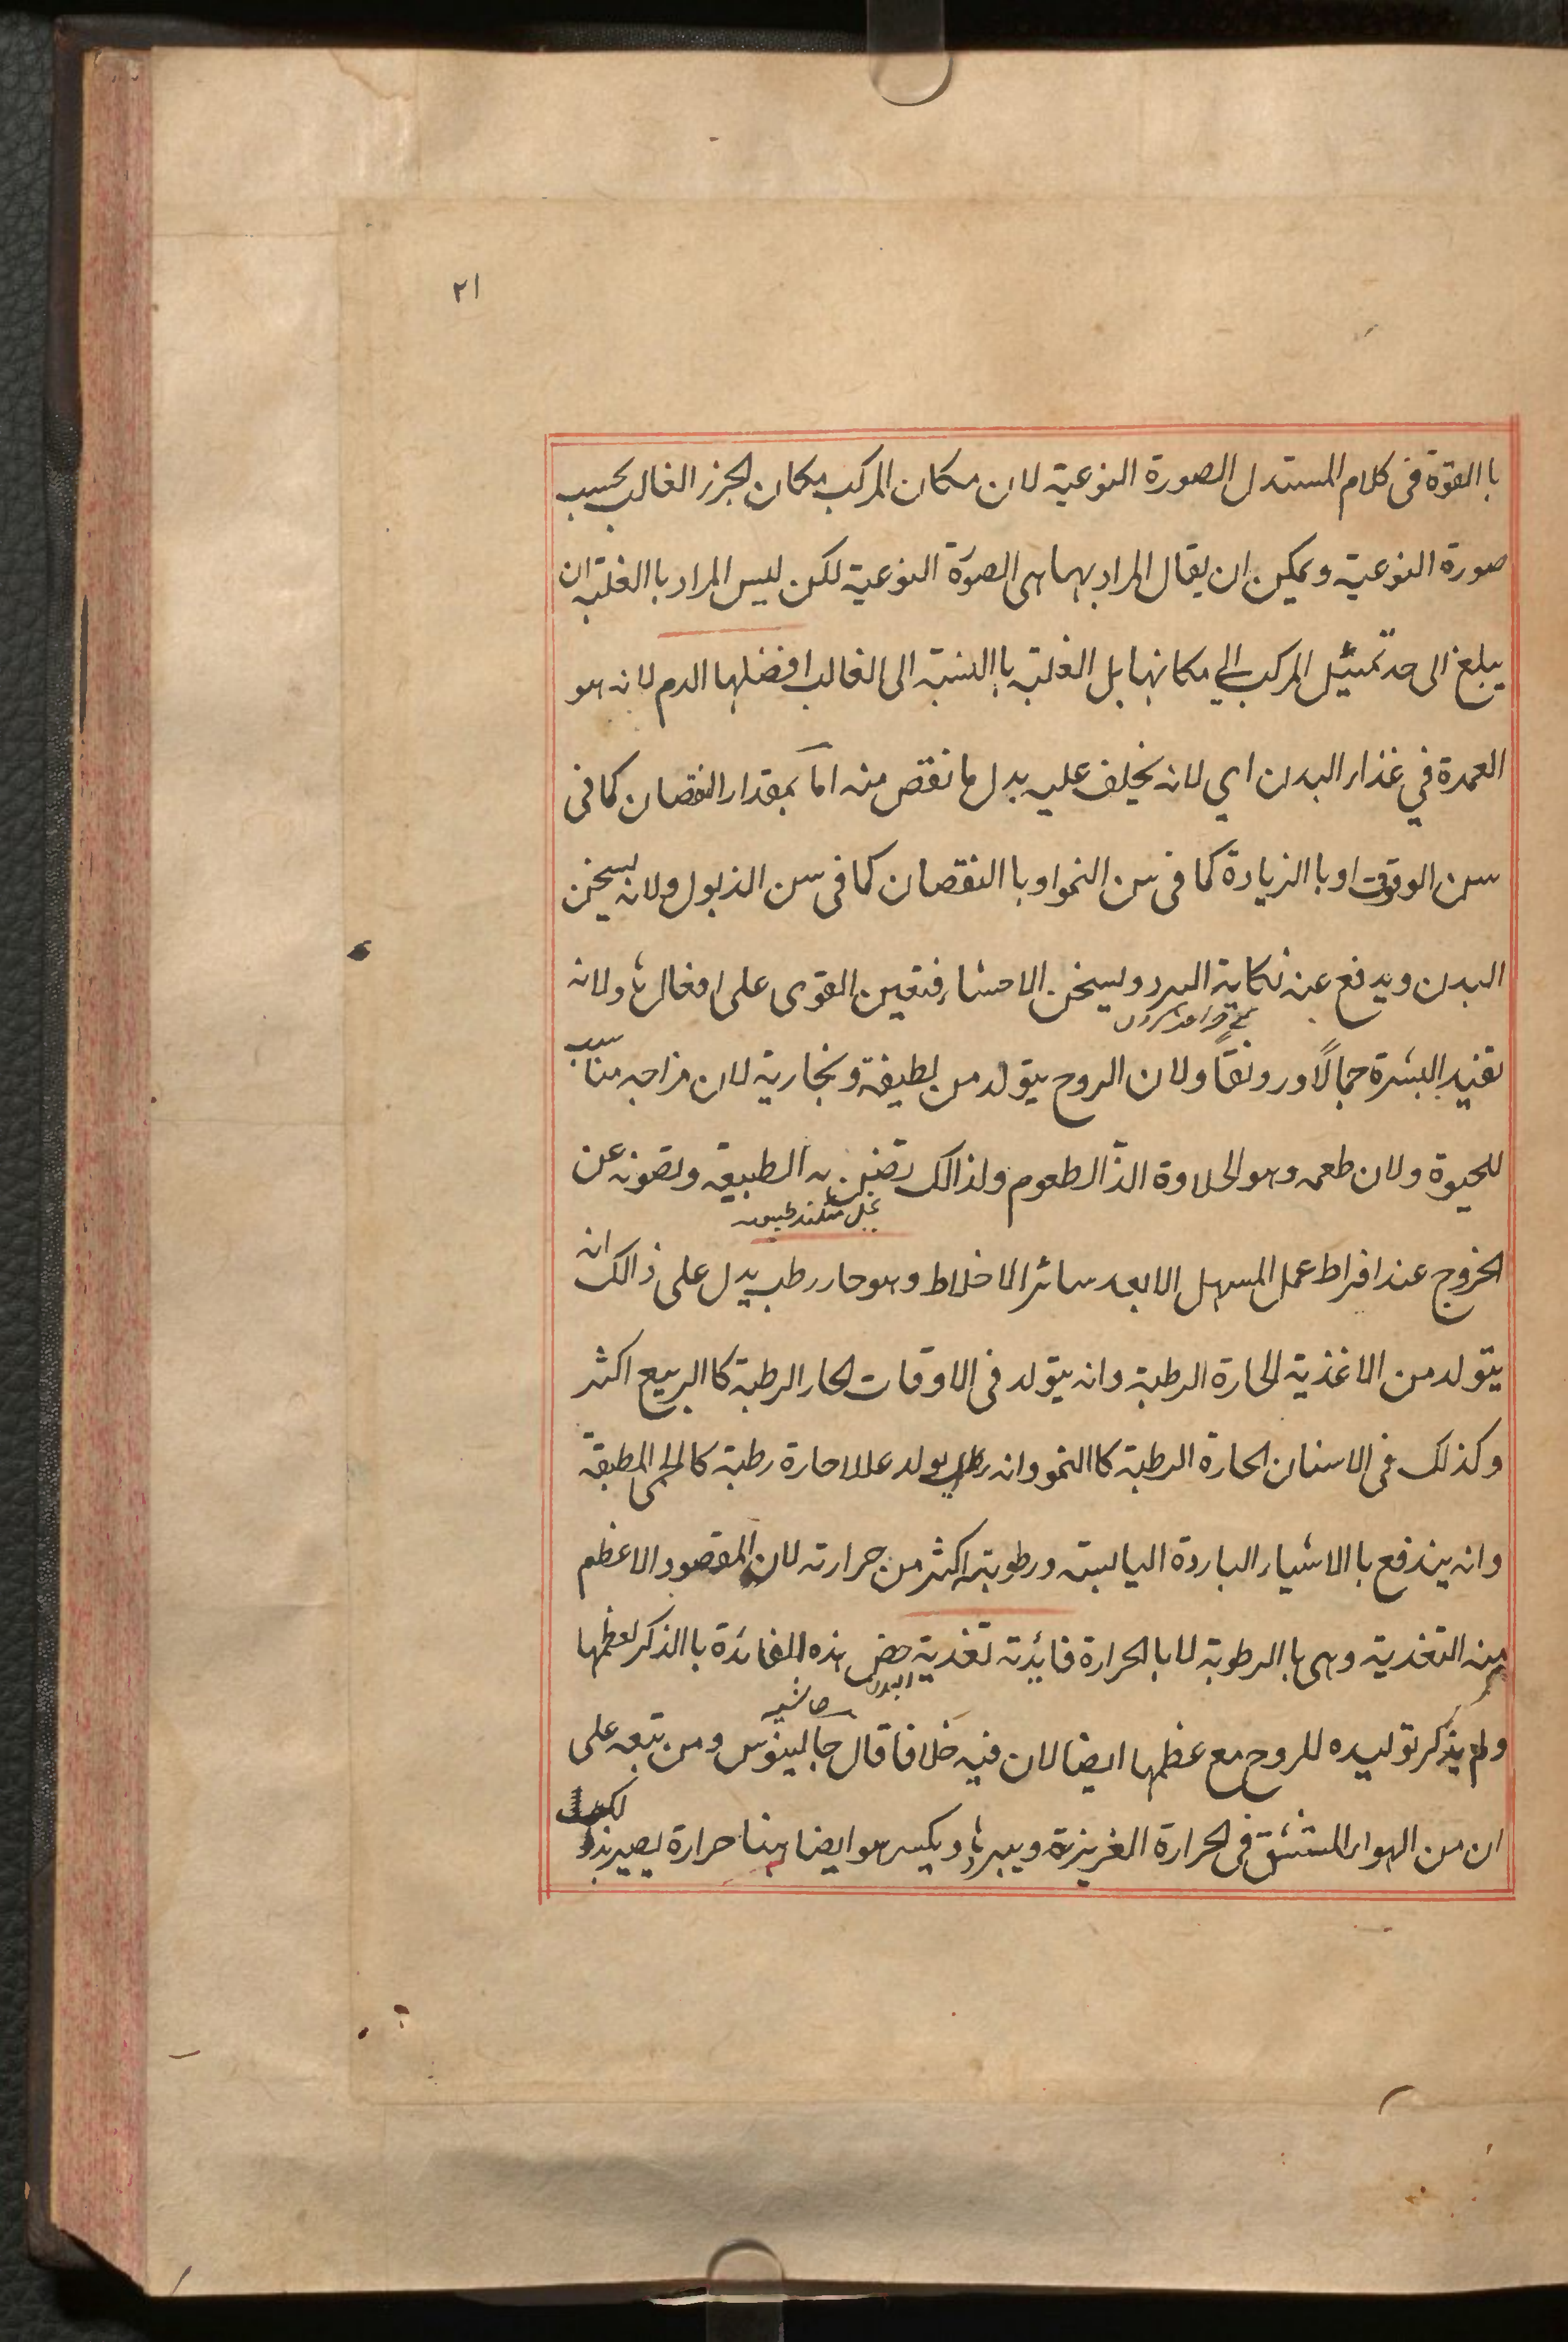 ٢١
با القوة فى كلام المستدل الصورة النوعية لان مكان المركب مكان الجزء الغالب بحسب
صورة النوعية ويمكن ان يقال المراد بهما هى الصورة النوعية لكن ليس المراد با الغلبة ان
يبلغ الى حد تمثيل المركب الي مكانها بل الغلبة با النسبة الى الغالب افضلها الدم لانه هو
العمدة في غذاء البدن اي لانه يخلف عليه بدل ما نقص منه اما بمقدار النقصان كما فى
سن الوقوف او با الزيادة كما فى سن النمو او با النقصان كما فى سن الذبول ولانه يسخن
البدن ويدفع عنه نكاية البرد ويسخن الاحشاء فتعين القوى على افعالها ولانه
تفيد البشرة جمالًا ورونقًا ولان الروح يتولد من لطيفة وبخارية لان مزاجه مناسب
للحيوة ولان طعمه وهو الحلاوة الذّ الطعوم ولذالك تضنن به الطبيعة وتصونه عن
الخروج عند افراط عمل المسهل الا بعد سائر الاخلاط وهو حار رطب يدل على ذالك انه
يتولد من الاغذية الحارة الرطبة وانه يتولد فى الاوقات الحار الرطبة كا الربيع اكثر
وكذلك فى الاسنان الحارة الرطبة كا النمو وانه يولد عللا حارة رطبة كالحمى المطبقة
وانه يندفع با الاشياء الباردة اليابسة ورطوبته اكثر من حرارته لان المقصود الاعظم
منه التغذية وهى با الرطوبة لا با الحرارة فائدته تغذية البدن خص هذه الفائدة با الذكر لعظمها
حاشيه
ولم يذكر توليده للروح مع عظمها ايضا لان فيه خلافا قال جالينوس ومن تبعه على
ان من الهواء المستنشق فى الحرارة الغريزية ويبردها ويكسر هو ايضا هنا حرارة يصير بذلك